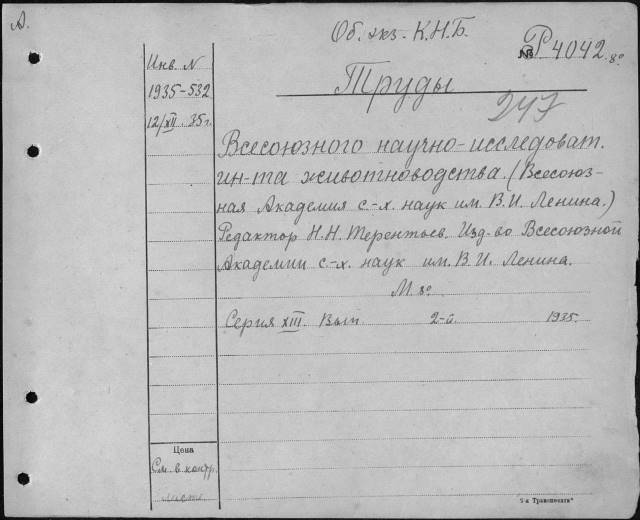 А.
Об. экз. К.Н.Б.
№ Р 4042. 8°
Инв. №
1935-532
12/XII 35 г.
Труды
247
Всесоюзного научно-исследоват.
ин-та животноводства. (Всесоюз-
ная Академия с.-х. наук им. В.И. Ленина.)
Редактор Н.Н. Терентьев. Изд-во Всесоюзной
Академии с.-х. наук им. В.И. Ленина.
М. 8°.
Серия XIII. Вып. 2-й. 1935.
Цена
См. в контр.
листе.